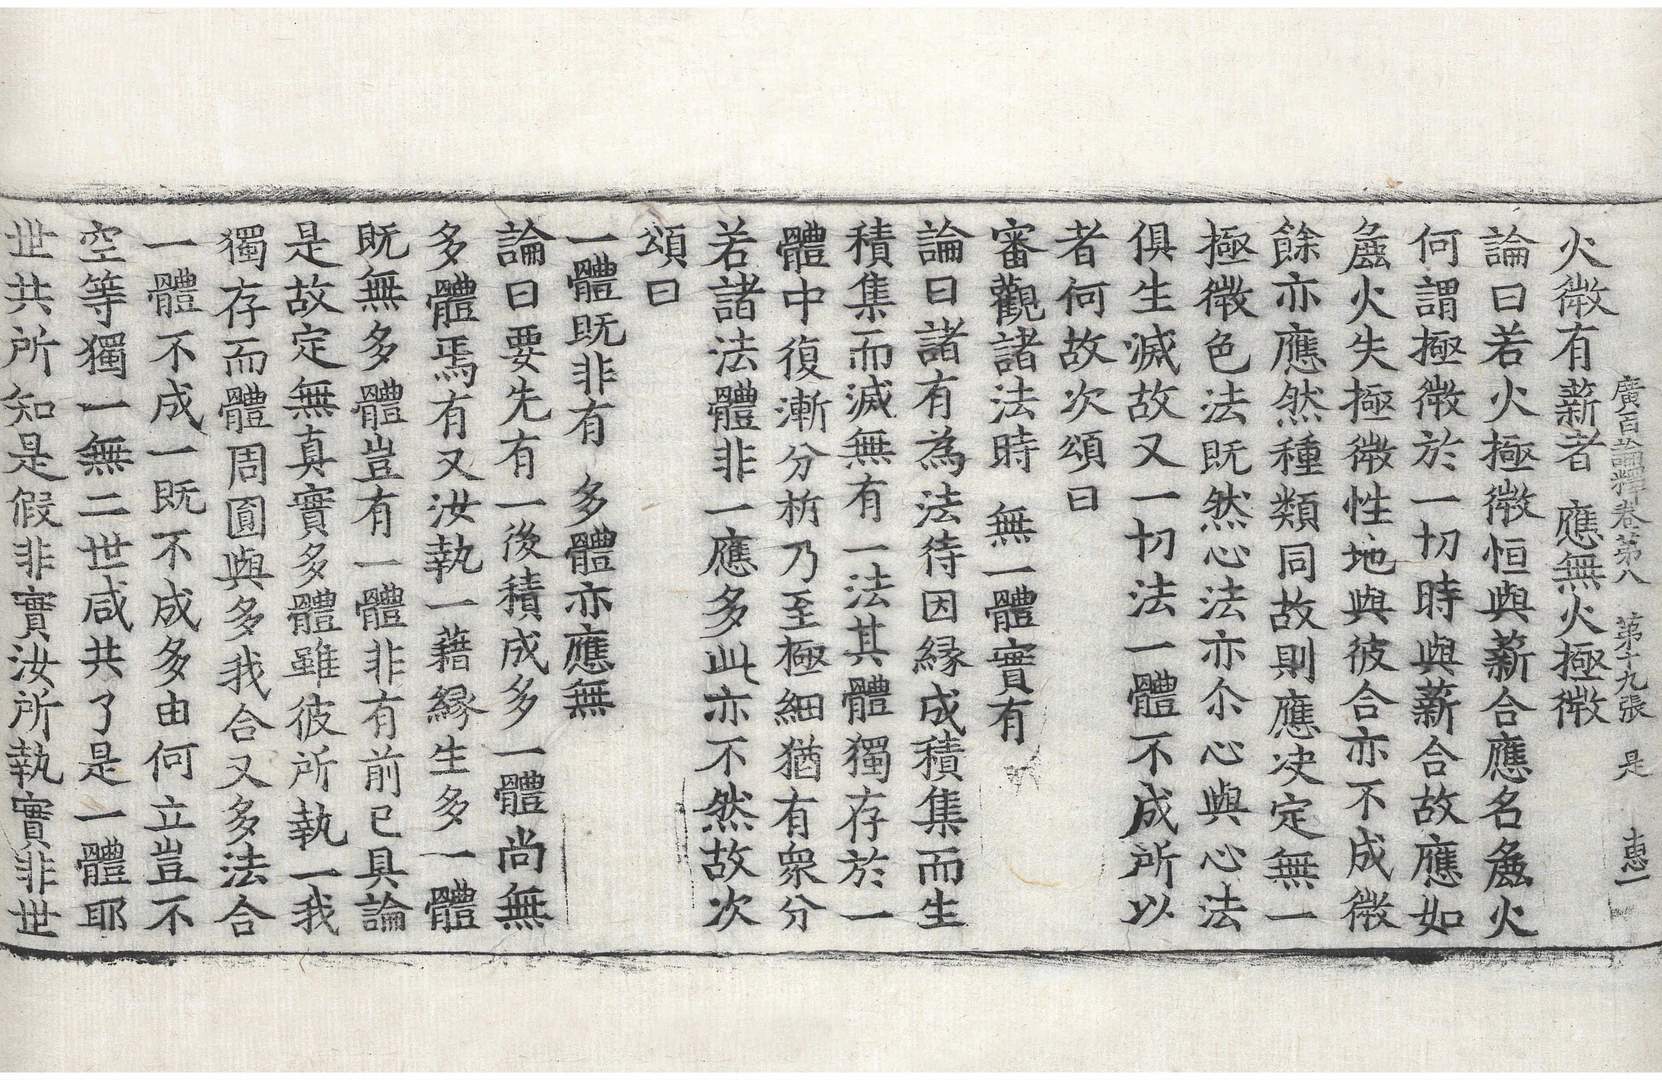 廣百論釋卷第八 第十九張 是 惠一
火微有薪者 應無火極微
論曰若火極微恒與薪合應名麁火
何謂極微於一切時與薪合故應如
麁火失極微性地與彼合亦不成微
餘亦應然種類同故則應決定無一
極微色法既然心法亦尒心與心法
俱生滅故又一切法一體不成所以
者何故次頌曰
審觀諸法時 無一體實有
論曰諸有為法待因緣成積集而生
積集而滅無有一法其體獨存於一
體中復漸分析乃至極細猶有衆分
若諸法體非一應多此亦不然故次
頌曰
一體既非有 多體亦應無
論曰要先有一後積成多一體尚無
多體焉有又汝執一藉緣生多一體
既無多體豈有一體非有前已具論
是故定無真實多體雖彼所執一我
獨存而體周圓與多我合又多法合
一體不成一既不成多由何立豈不
空等獨一無二世咸共了是一體耶
世共所知是假非實汝所執實非世